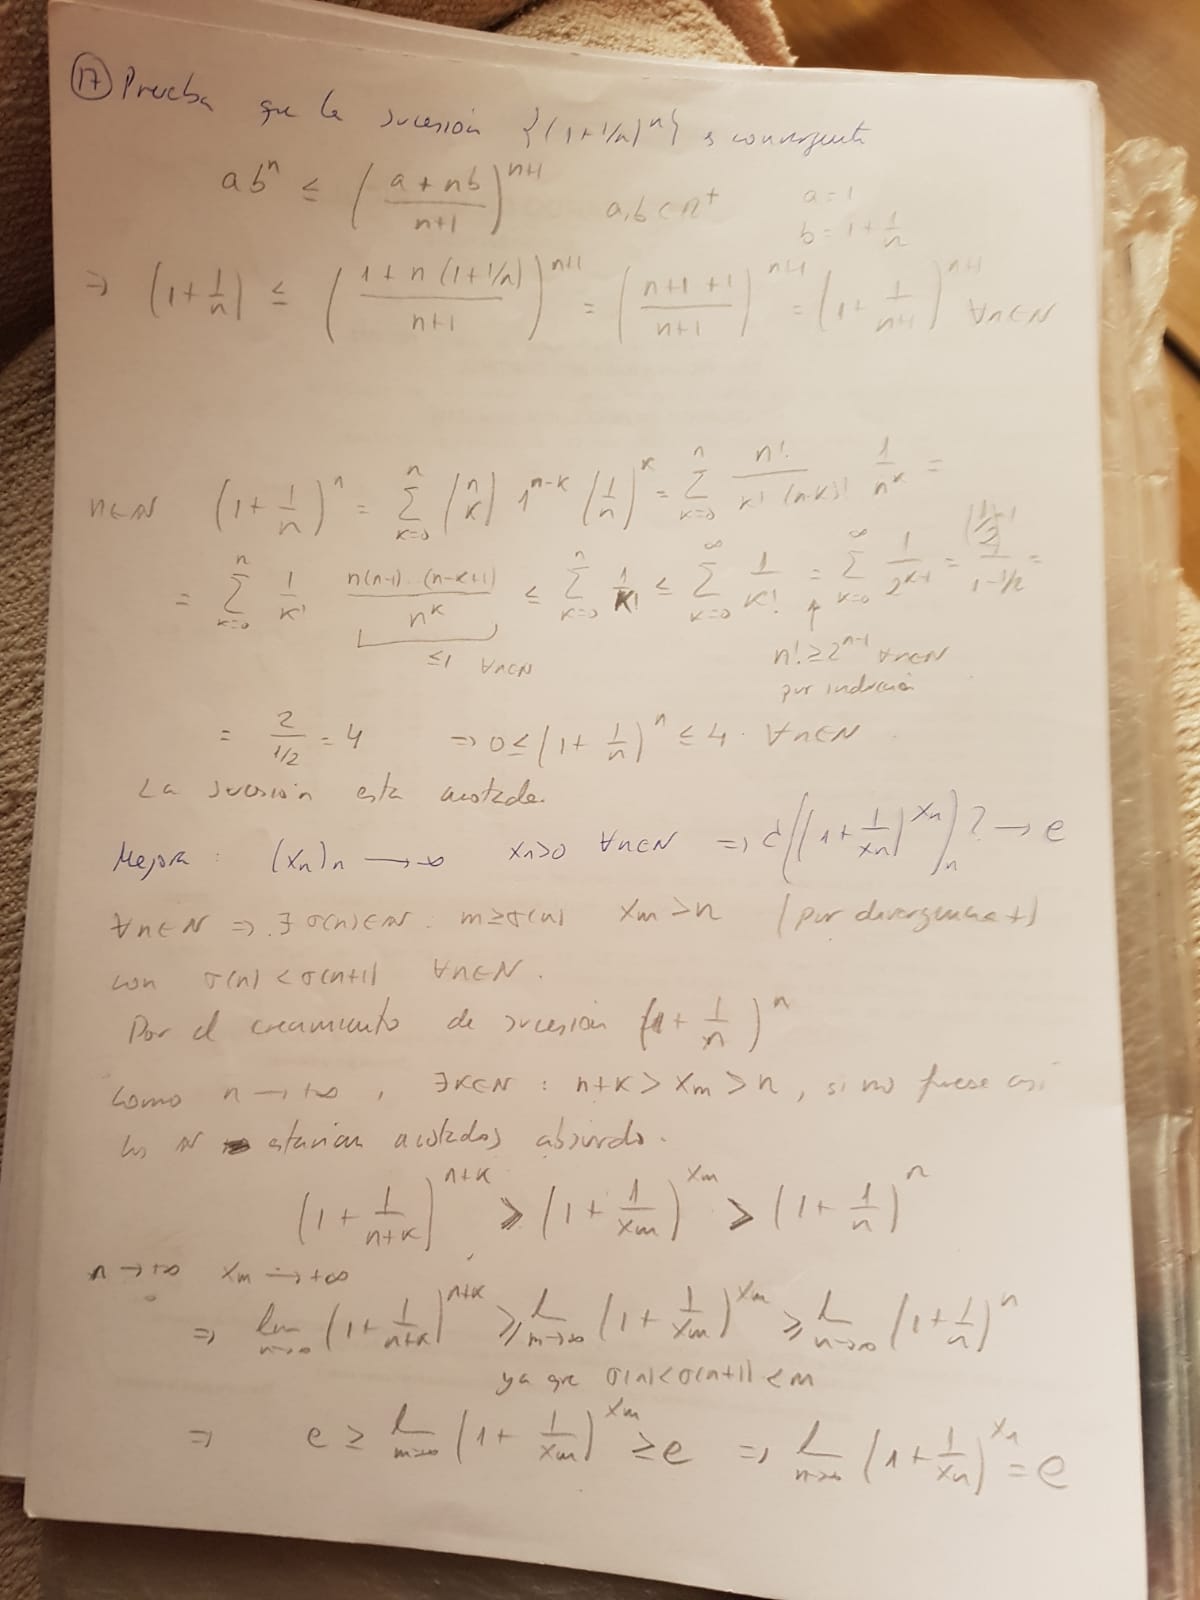 17 Prueba que la sucesión {(1+1/n)^n} es convergente
ab^n ≤ ((a+nb)/(n+1))^(n+1)   a,b ∈ R^+   a=1
b=1+1/n
⇒ (1+1/n) ≤ ((1+n(1+1/n))/(n+1))^(n+1) = ((n+1+1)/(n+1))^(n+1) = (1+1/(n+1))^(n+1) ∀n∈N
n∈N (1+1/n)^n = ∑_{k=0}^n (n k) 1^(n-k) (1/n)^k = ∑_{k=0}^n n!/(k!(n-k)!) 1/n^k =
= ∑_{k=0}^n 1/k! n(n-1)·(n-k+1)/n^k ≤ ∑_{k=0}^n 1/k! ≤ ∑_{k=0}^∞ 1/k! = ∑_{k=0}^∞ 1/2^(k-1) = (1/2)^(-1)/(1-1/2) =
≤1 ∀n∈N   n! ≥ 2^(n-1) ∀n∈N
por inducción
= 2/(1/2) = 4   ⇒ 0 ≤ (1+1/n)^n ≤ 4. ∀n∈N
La sucesión esta acotada.
Mejora: (xn)n → ∞   xn>0 ∀n∈N ⇒ ¿((1+1/xn)^xn)n? → e
∀n∈N ⇒ ∃ σ(n)∈N: m≥σ(n) xm>n (por divergencia +)
con σ(n) < σ(n+1) ∀n∈N.
Por el crecimiento de sucesión (1+1/n)^n
como n → +∞, ∃k∈N: n+k > xm > n, si no fuese así
los N estarian acotados absurdo.
(1+1/(n+k))^(n+k) ≥ (1+1/xm)^xm > (1+1/n)^n
n → +∞   xm → +∞
⇒ lim_{n→∞} (1+1/(n+k))^(n+k) ≥ l_{m→∞} (1+1/xm)^xm ≥ l_{n→∞} (1+1/n)^n
ya que σ(n)<σ(n+1)<m
⇒ e ≥ l_{m→∞} (1+1/xm)^xm ≥ e ⇒ l_{n→∞} (1+1/xn)^xn = e